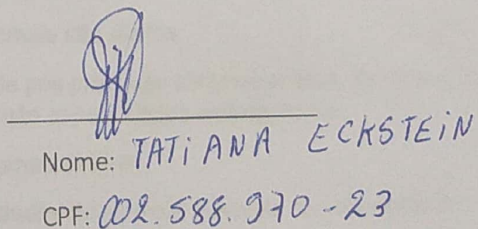 Nome: TATIANA ECKSTEIN
CPF: 002.588.970-23